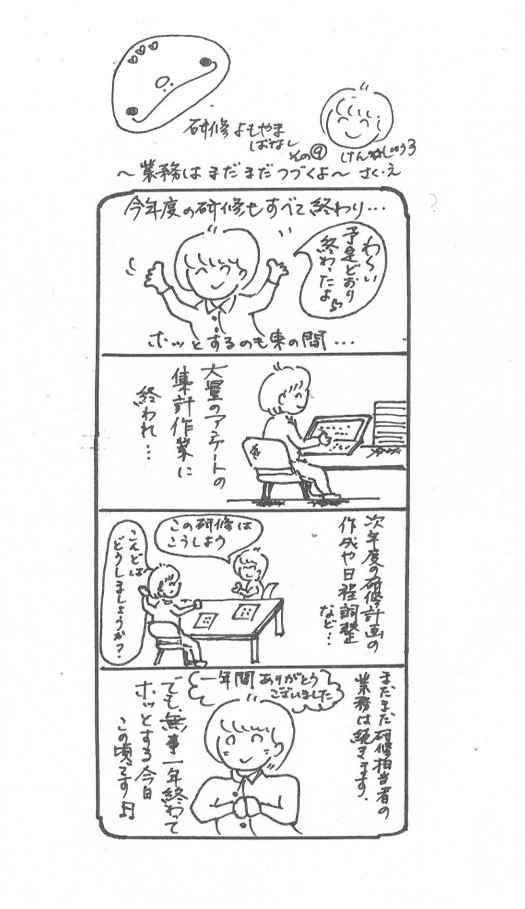 研修よもやま
ばなし
その⑨
けんしゅう3
～業務はまだまだつづくよ～
さく・え
今年度の研修もすべて終わり…
わ～い
予定どおり
終わったよ♪
ホッとするのも束の間…
大量のアンケートの
集計作業に
終われ…
次年度の研修計画の
作成や日程調整
など…
この研修は
こうしよう
こんどは
どうしましょうか？
まだまだ研修担当者の
業務は続きます。
一年間ありがとう
ございました
でも、無事一年終わって
ホッとする今日
この頃です♫